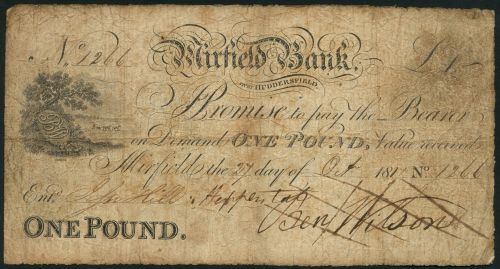 No. 1266 Mirfield Bank. £1
near HUDDERSFIELD
I Promise to pay the Bearer
on Demand ONE POUND. Value received
Mirfield the 27 day of Oct 181 No. 1266
Entd. John Hill
Ben Wilson
ONE POUND.